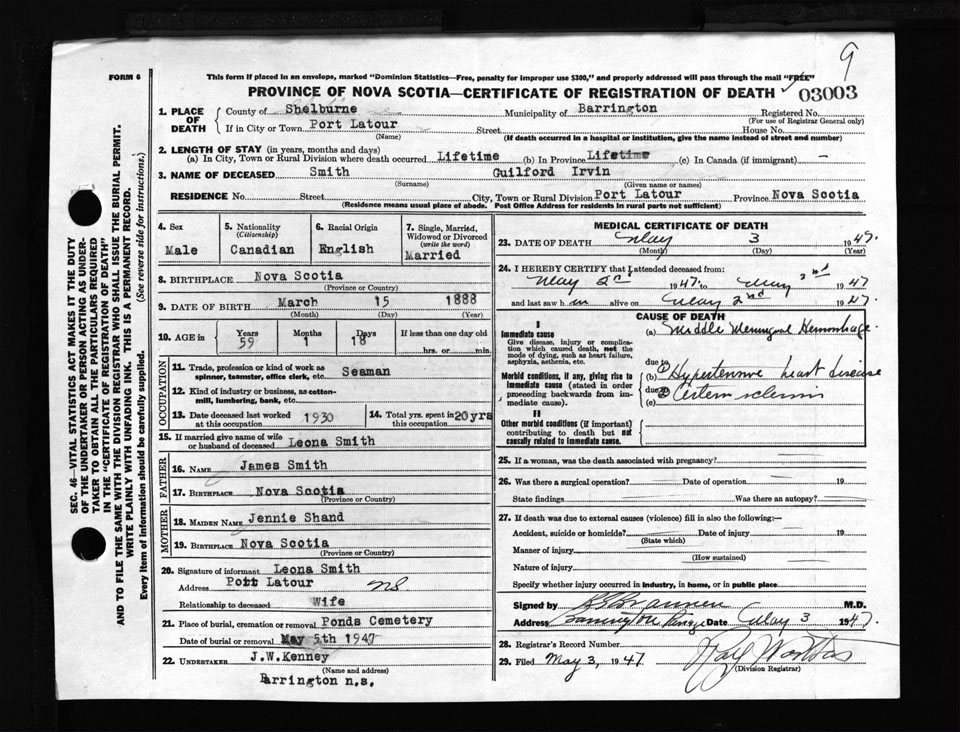 9
FORM 6
This form if placed in an envelope, marked "Dominion Statistics—Free, penalty for improper use $300," and properly addressed will pass through the mail "FREE"
PROVINCE OF NOVA SCOTIA—CERTIFICATE OF REGISTRATION OF DEATH
03003
1. PLACE OF DEATH { County of Shelburne Municipality of Barrington Registered No.
(For use of Registrar General only)
If in City or Town Port Latour Street House No.
(Name) (If death occurred in a hospital or institution, give the name instead of street and number)
2. LENGTH OF STAY (in years, months and days)
(a) In City, Town or Rural Division where death occurred Lifetime (b) In Province Lifetime (c) In Canada (if immigrant) —
3. NAME OF DECEASED Smith Guilford Irvin
(Surname) (Given name or names)
RESIDENCE No. Street City, Town or Rural Division Port Latour Province Nova Scotia
(Residence means usual place of abode. Post Office Address for residents in rural parts not sufficient)
4. Sex
Male
5. Nationality
(Citizenship)
Canadian
6. Racial Origin
English
7. Single, Married, Widowed or Divorced
(write the word)
Married
8. BIRTHPLACE Nova Scotia
(Province or Country)
9. DATE OF BIRTH March 15 1888
(Month) (Day) (Year)
10. AGE in Years 59 Months 1 Days 18 If less than one day old
hrs. or min.
OCCUPATION
11. Trade, profession or kind of work as
spinner, teamster, office clerk, etc. Seaman
12. Kind of industry or business, as cotton-
mill, lumbering, bank, etc.
13. Date deceased last worked
at this occupation 1930
14. Total yrs. spent in
this occupation 20 yrs
15. If married give name of wife
or husband of deceased Leona Smith
FATHER
16. NAME James Smith
17. BIRTHPLACE Nova Scotia
(Province or Country)
MOTHER
18. MAIDEN NAME Jennie Shand
19. BIRTHPLACE Nova Scotia
(Province or Country)
20. Signature of informant Leona Smith
Address Port Latour NS
Relationship to deceased Wife
21. Place of burial, cremation or removal Ponds Cemetery
Date of burial or removal May 5th 1947
22. UNDERTAKER J.W.Kenney
(Name and address)
Barrington n.s.
MEDICAL CERTIFICATE OF DEATH
23. DATE OF DEATH May 3 1947.
(Month) (Day) (Year)
24. I HEREBY CERTIFY that I attended deceased from:
May 2nd 1947 to May 2nd 1947
and last saw him alive on May 2nd 1947.
CAUSE OF DEATH
I
Immediate cause
Give disease, injury or complication which caused death, not the mode of dying, such as heart failure, asphyxia, asthenia, etc.
(a) Middle Meningeal Hemorrhage.
due to
Morbid conditions, if any, giving rise to immediate cause (stated in order proceeding backwards from immediate cause).
(b) Hypertensive heart disease
due to
(c)
II
Other morbid conditions (if important) contributing to death but not causally related to immediate cause.
25. If a woman, was the death associated with pregnancy?
26. Was there a surgical operation? Date of operation 19
State findings Was there an autopsy?
27. If death was due to external causes (violence) fill in also the following:—
Accident, suicide or homicide? Date of injury 19
(State which)
Manner of injury
(How sustained)
Nature of injury
Specify whether injury occurred in industry, in home, or in public place
Signed by M.D.
Address Barrington Passage Date May 3 1947
28. Registrar's Record Number
29. Filed May 3, 1947.
(Division Registrar)
SEC. 46—VITAL STATISTICS ACT MAKES IT THE DUTY
OF THE UNDERTAKER OR PERSON ACTING AS UNDER-
TAKER TO OBTAIN ALL THE PARTICULARS REQUIRED
IN THE "CERTIFICATE OF REGISTRATION OF DEATH"
AND TO FILE THE SAME WITH THE DIVISION REGISTRAR WHO SHALL ISSUE THE BURIAL PERMIT.
WRITE PLAINLY WITH UNFADING INK. THIS IS A PERMANENT RECORD.
Every item of information should be carefully supplied. (See reverse side for instructions.)